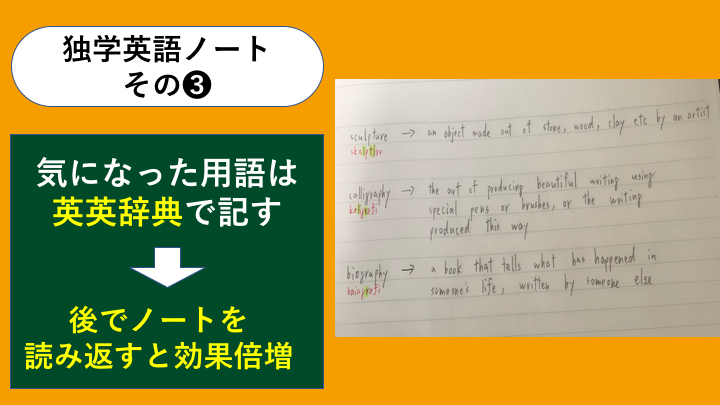 独学英語ノート
その❸
気になった用語は
英英辞典で記す
後でノートを
読み返すと効果倍増
sculpture → an object made out of stone, wood, clay etc by an artist
calligraphy → the art of producing beautiful writing using
special pens or brushes, or the writing
produced this way
biography → a book that tells what has happened in
someone's life, written by someone else